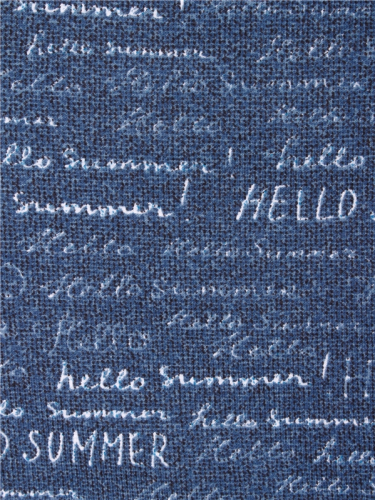 summer!
hello summer Hello
Hello Hello Summer
Hello Hello
hello summer! hello
summer! HELLO
Hello Hello Summer
Hello Summer
Hello Summer
Hello Hello
hello summer! H
summer hello summer
O SUMMER Hello